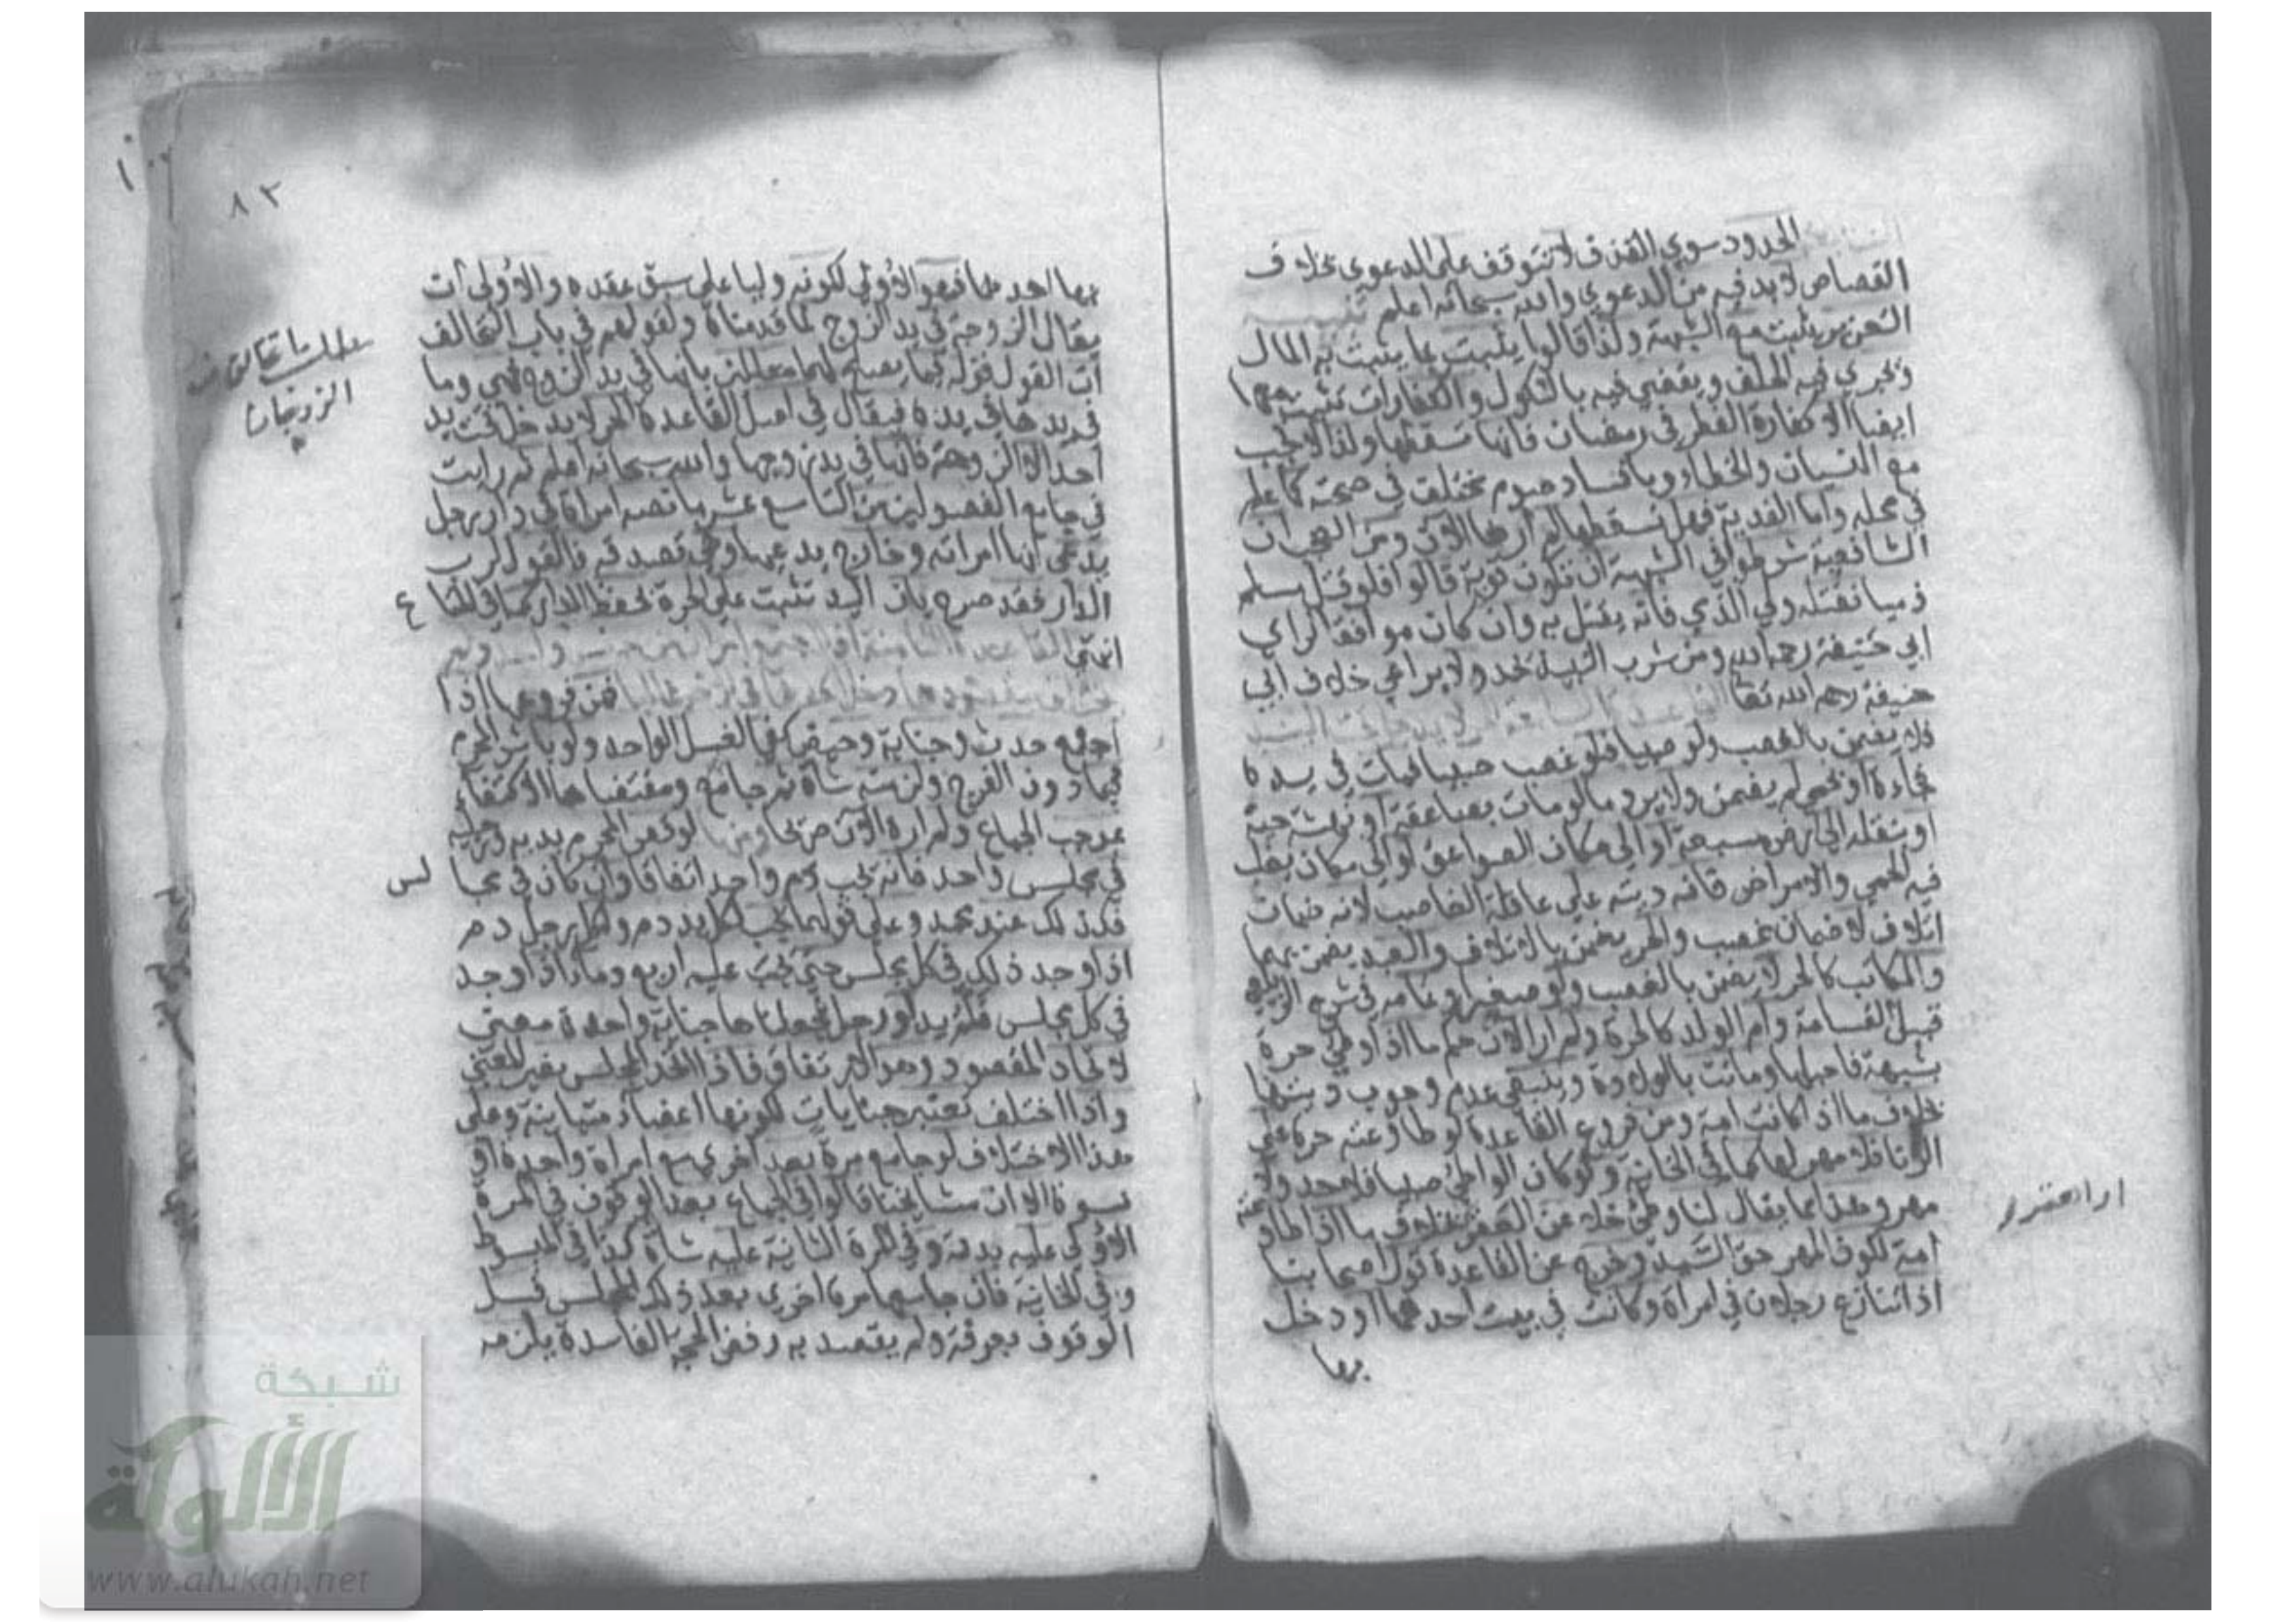 الحدود سوي القذف لا تتوقف على الدعوي بخلاف
القصاص لا بد فيه من الدعوي والله سبحانه اعلم تنبيه
التعزير يثبت مع الشبهة ولذا قالوا يثبت بما يثبت به المال
ويجري فيه الحلف ويقضي فيه بالنكول والكفارات تثبت معها
ايضا الا كفارة الفطر في رمضان فانها تسقطها ولذا لا تجب
مع النسيان والخطاء وبافساد صوم مختلف في صحته كما علم
في محله واما الفدية فهل تسقطها لم ارها الآن ومن العجب ان
الشافعية شرطوا في الشبهة ان تكون قوية قالوا فلو قتل مسلم
ذميا فقتله ولي الذمي فانه يقتل به وان كان موافقا لراي
ابي حنيفة رحمه الله ومن شرب النبيذ يحد ولا يراعي خلاف ابي
حنيفة رحمه الله تعا القاعدة السابعة الحر لا يدخل تحت اليد
فلا يضمن بالغصب ولو صبيا فلو غصب صبيا فمات في يده
فجاءة او بحمي لم يضمن ولا يرد ما لو مات بصاعقة او نهشة حية
او بنقله الى ارض مسبعة او الي مكان الصواعق او الي مكان يغلب
فيه الحمي والامراض فانه ديته علي عاقلة الغاصب لانه ضمان
اتلاف لا ضمان غصب والحر يضمن بالاتلاف والعبد يضمن بهما
والمكاتب كالحر لا يضمن بالغصب ولو صغيرا وتمامه في شرح الزيلعي
قبل القسامة وام الولد كالحرة ولم ار الآن حكم ما اذا وطي حرة
بشبهة فاحبلها وماتت بالولادة وينبغي عدم وجوب ديتها
بخلاف ما اذا كانت امة ومن فروع القاعدة لو طاوعته حرة علي
الزنا فلا مهر لها كما في الخانية ولو كان الواطئ صبيا فلا حد ولا
مهر وهذا مما يقال لنا وطئ خلا عن العقر بخلاف ما اذا طاوعته
امة لكون المهر حق السيد وخرج عن القاعدة قول اصحابنا
اذا تنازع رجلان في امراة وكانت في بيت احدهما او دخل
بها
٨٣
بها احدهما فهو الاولي لكونه دليلا علي سبق عقده والاولي ان
يقال الزوجة في يد الزوج لما قدمناه ولقولهم في باب التحالف
ان القول قوله فيما يصلح لهما معللين بانها في يد الزوج فهي وما
في يدها في يده فيقال في اصل القاعدة الحر لا يدخل تحت يد
احد الا الزوجة فانها في يد زوجها والله سبحانه اعلم ثم رايت
في جامع الفصولين من التاسع عشر ما نصه امراة في دار رجل
يدعي انها امراته وخارج يدعيها وهي تصدقه فالقول لرب
الدار فقد صرح بان اليد تثبت علي الحرة بحفظ الدار كما في المتاع
انتهي القاعدة الثامنة اذا اجتمع امران من جنس واحد ولم
يختلف مقصودهما دخل احدهما في الاخر غالبا فمن فروعها اذا
اجتمع حدث وجنابة وحيض كفي الغسل الواحد ولو باشر المحرم
فيما دون الفرج ولزمته شاة ثم جامع ومقتضاها الاكتفاء
بموجب الجماع ولم اره الآن صريحا ومنها لو قص المحرم يديه ورجليه
في مجلس واحد فانه يجب دم واحد اتفاقا وان كان في مجالس
فكذلك عند محمد وعلي قولهما يجب لكل يد دم ولكل رجل دم
اذا وجد ذلك في كل مجلس حتي يجب عليه اربع دماء اذا وجد
في كل مجلس قلم يد او رجل فجعلناها جناية واحدة معني
لاتحاد المقصود وهو الارتفاق فاذا اتحد المجلس يعتبر المعني
واذا اختلف تعتبر جنايات لكونها اعضاء متباينة وعلي
هذا الاختلاف لو جامع مرة بعد اخري مع امراة واحدة او
نسوة الا ان مشايخنا قالوا في الجماع بعد الوقوف في المرة
الاولي عليه بدنة وفي المرة الثانية عليه شاة كذا في المبسوط
وفي الخانية فان جامعها مرة اخري بعد ذلك المجلس قبل
الوقوف بعرفة ولم يقصد به رفض الحجة الفاسدة يلزمه
شبكة
الألوكة
www.alukah.net